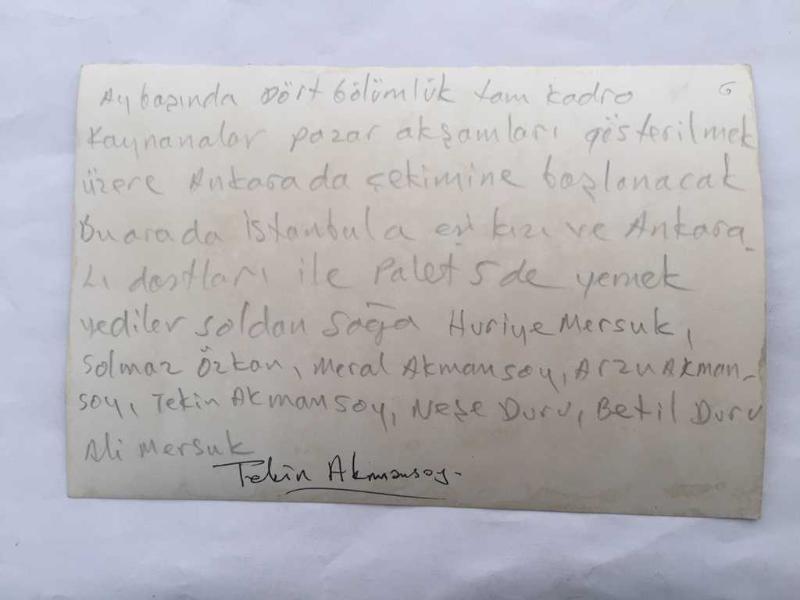 Ay başında Dört bölümlük tam kadro 6
Kaynanalar pazar akşamları gösterilmek
üzere Ankarada çekimine başlanacak
Bu arada İstanbula eşi kızı ve Ankara
Lı dostları ile Palet 5 de yemek
yediler soldan sağa Huriye Mersuk,
Solmaz Özkan, Meral Akmansoy, Arzu Akman-
soy, Tekin Akmansoy, Neşe Duru, Betil Duru
Ali Mersuk
Tekin Akmansoy-